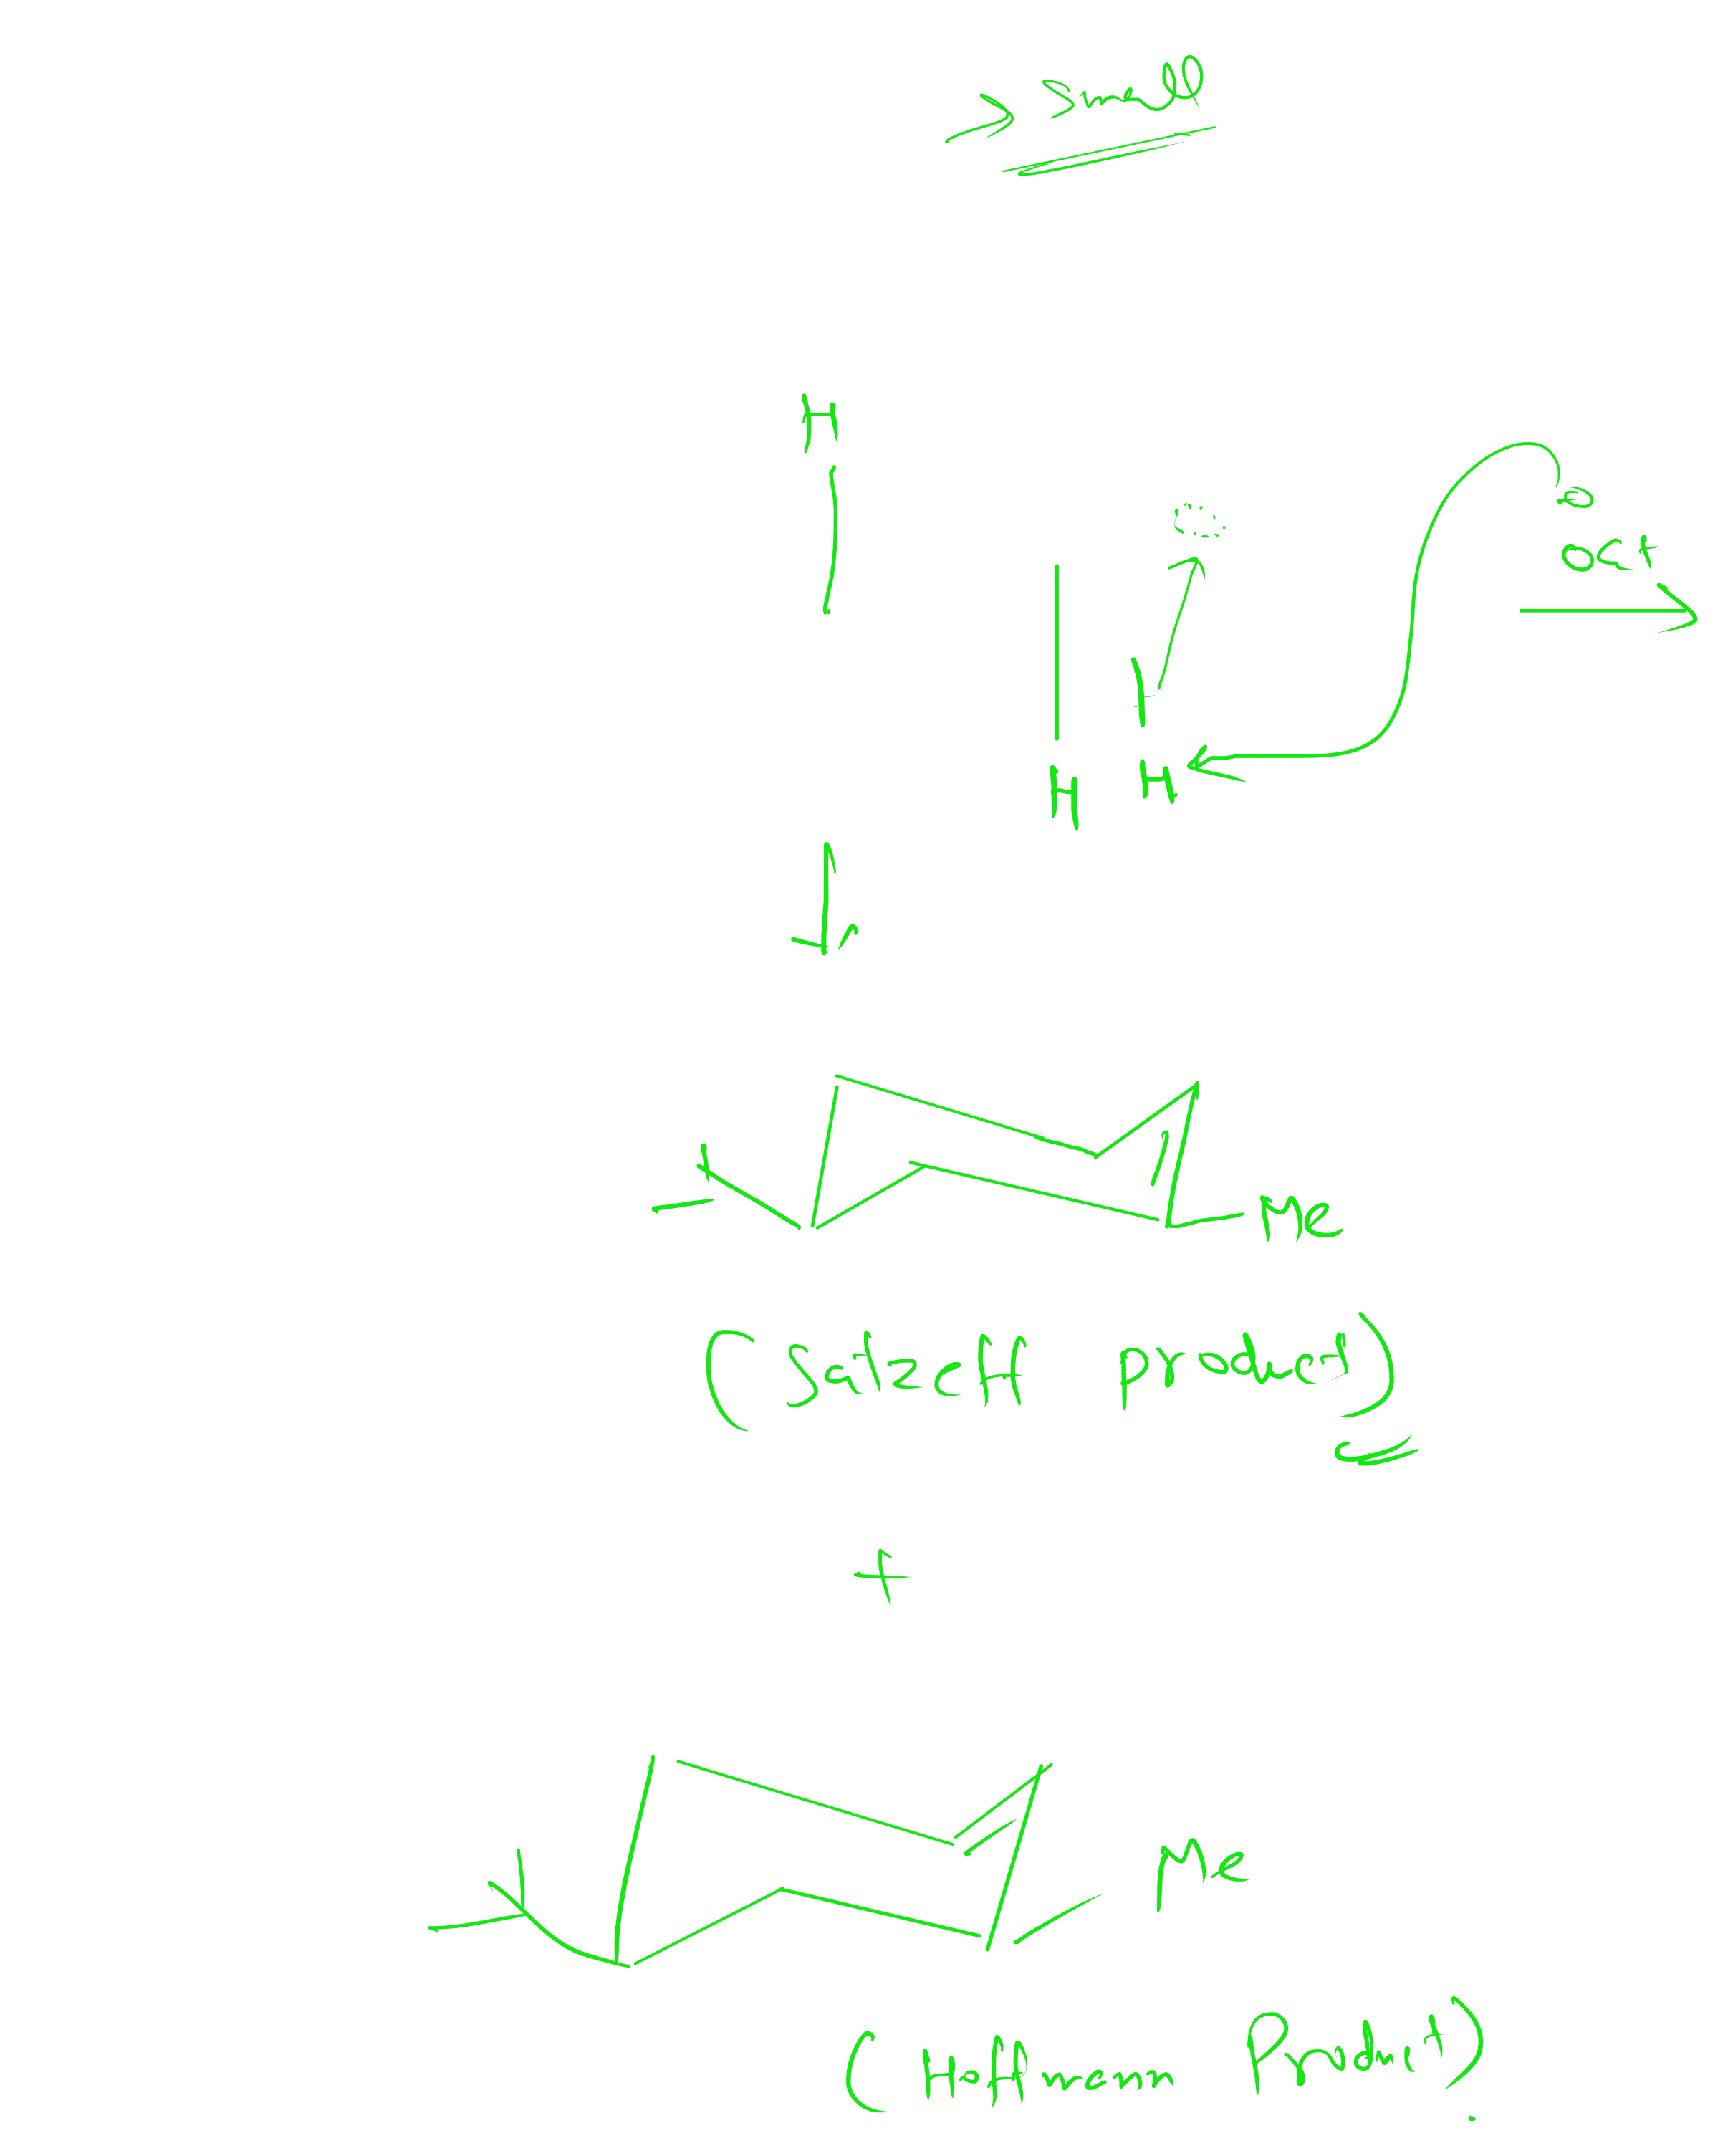 > small
H
OEt
H H
Me
(Saizeff product)
+
Me
(Hoffmann Product)